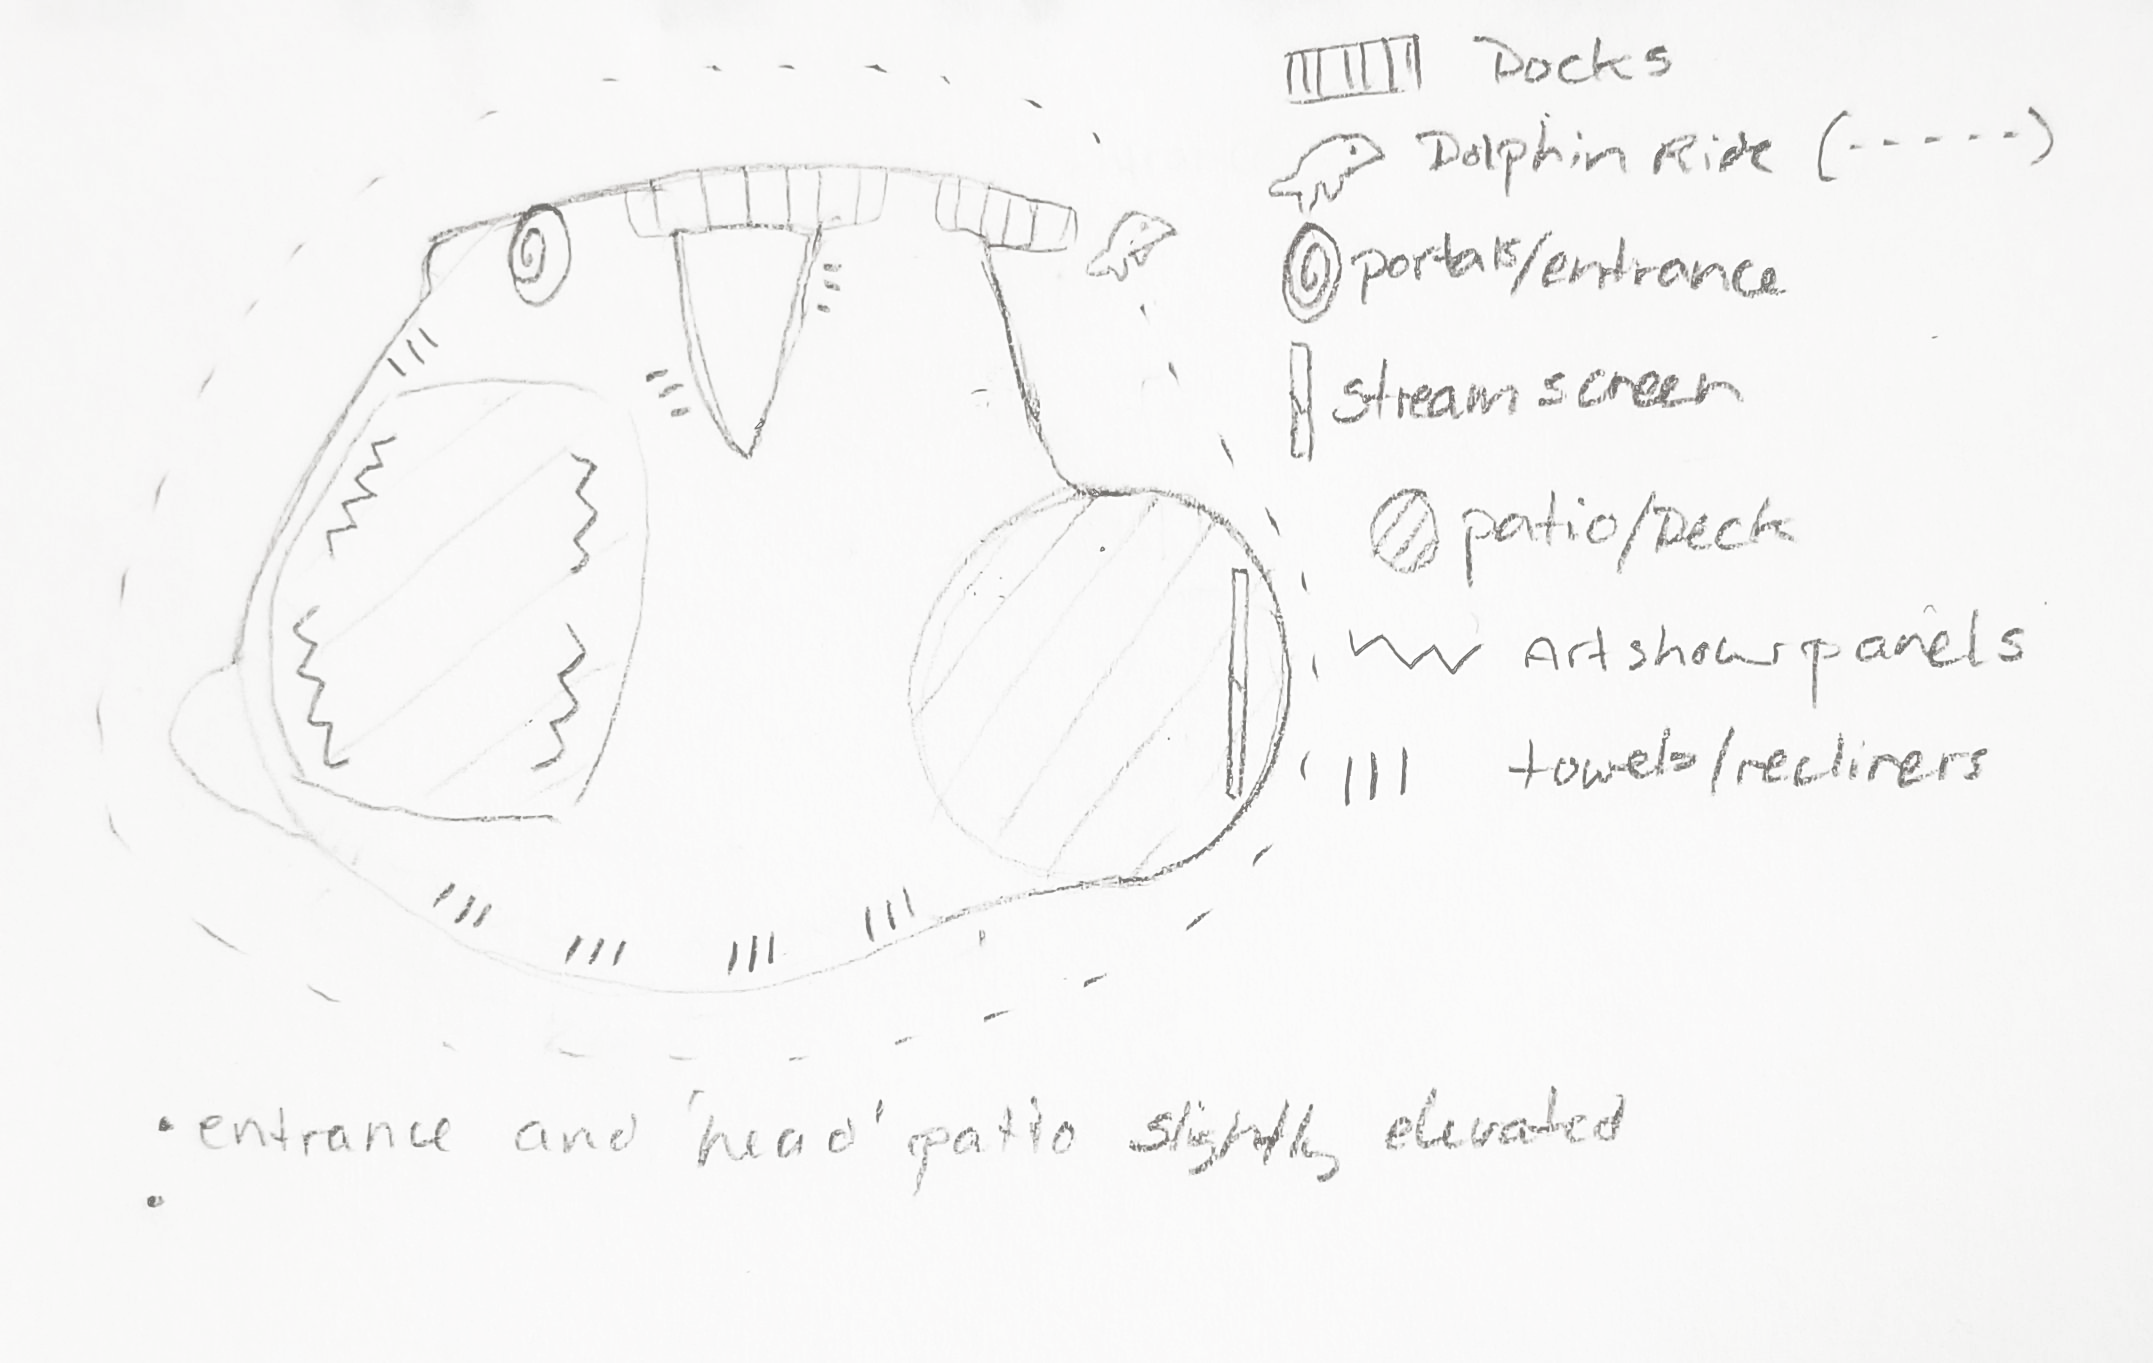 Docks
Dolphin Ride (-----)
portals/entrance
stream screen
patio/Deck
Art show panels
towels/recliners
• entrance and 'head' patio slightly elevated
•